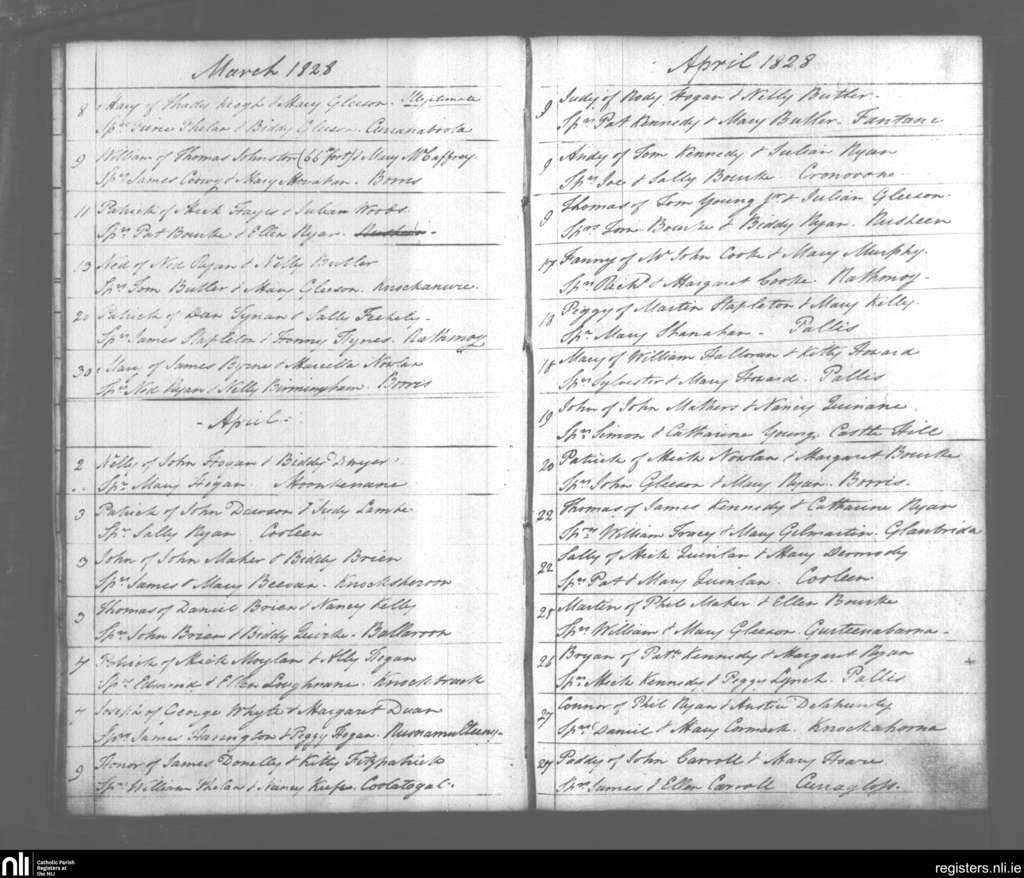 March 1828
8 Mary of Thady Keogh & Mary Gleeson. Illegitimate
Sprs James Phelan & Biddy Gleeson. Curranabrola
9 William of Thomas Johnston (66th foot) & Mary McCaffray
Sprs James Conroy & Mary Monahan. Borris
11 Patrick of Mick Frayes & Julian Woods.
Sprs Pat Bourke & Ellen Ryan.
13 Ned of Ned Ryan & Nelly Butler
Sprs Tom Butler & Mary Gleeson. Knockanure.
20 Patrick of Dan Tynan & Sally Feehely.
Sprs James Stapleton & Fronny Hynes. Rathmoy
30 Mary of James Byrne & Marcella Nowlan
Sprs Ned Ryan & Nelly Birmingham. Borris
- April -
2 Nelly of John Hogan & Biddy Dwyer.
Spr Mary Hogan
3 Patrick of John Dawson & Judy Lambe.
Spr Sally Ryan Cooleen
3 John of John Maher & Biddy Brien
Sprs James & Mary Beevan. Knocksheroon
3 Thomas of Daniel Brien & Nancy Kelly
Sprs John Brien & Biddy Quirke. Balleroon
4 Patrick of Mick Moylan & Ally Hogan
Sprs Edmund & Ellen Loughnane. Knockbrack
4 Joseph of George Whyte & Margaret Duan
Sprs James Harington & Peggy Hogan.
9 Honor of James Donelly & Kitty Fitzpatrick
Sprs William Phelan & Nancy Keefe. Coolatogal.
April 1828
9 Judy of Rody Hogan & Nelly Butler.
Sprs Pat Kennedy & Mary Butler. Fantane
9 Andy of Tom Kennedy & Julian Ryan
Sprs Joe & Sally Bourke Cronovone.
9 Thomas of Tom Young Jr & Julian Gleeson.
Sprs Tom Bourke & Biddy Ryan. Rusheen
17 Fanny of Mr John Cooke & Mary Murphy.
Sprs Richd & Margaret Cooke Rathmoy-
18 Peggy of Martin Stapleton & Mary Kelly.
Spr Mary Shanahan. Pallis
18 Mary of William Halloran & Kitty Howard
Sprs Sylvester & Mary Howard. Pallis
19 John of John Mathers & Nancy Quinane.
Sprs Simon & Catharine Young. Castle Hill
20 Patrick of Mick Nowlan & Margaret Bourke
Sprs John Gleeson & Mary Ryan. Borris.
22 Thomas of James Kennedy & Catharine Ryan
Sprs William Tracy & Mary Gilmartin. Glanbrida
22 Sally of Mick Quinlan & Mary Dermody
Sprs Pat & Mary Quinlan. Cooleen
25 Martin of Phil Maher & Ellen Bourke
Sprs William & Mary Gleeson. Gurteenabarna.
26 Bryan of Patk Kennedy & Margaret Ryan
Sprs Mick Kennedy & Peggy Lynch. Pallis
27 Connor of Phil Ryan & Anstie Delahunty
Sprs Daniel & Mary Cormack. Knockahorna
29 Paddy of John Carroll & Mary Hoare
Sprs James & Ellen Carroll Curaglass.
nli Catholic Parish
Registers at
the NLI
registers.nli.ie